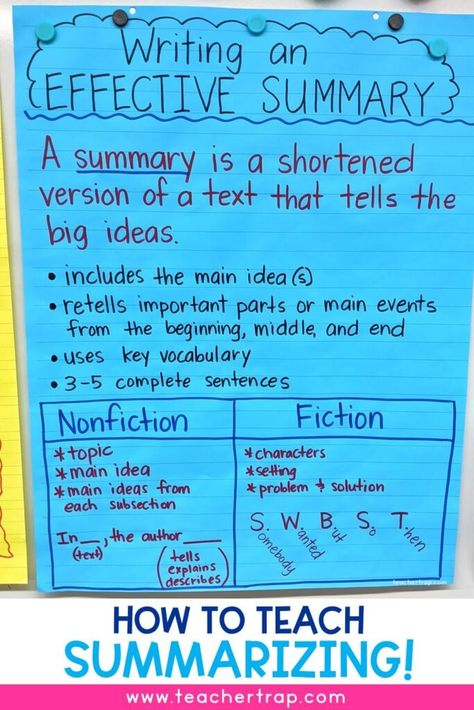 Writing an
EFFECTIVE SUMMARY
A summary is a shortened
version of a text that tells the
big ideas.
• includes the main idea(s)
• retells important parts or main events
from the beginning, middle, and end
• uses key vocabulary
• 3-5 complete sentences
Nonfiction
*topic
*main idea
*main ideas from
each subsection
In ___, the author ___
(text)
(tells
explains
describes)
Fiction
*characters
*setting
*problem & solution
S. W. B. S. T.
Somebody
Wanted
But
So
Then
teachertrap.com
HOW TO TEACH
SUMMARIZING!
www.teachertrap.com